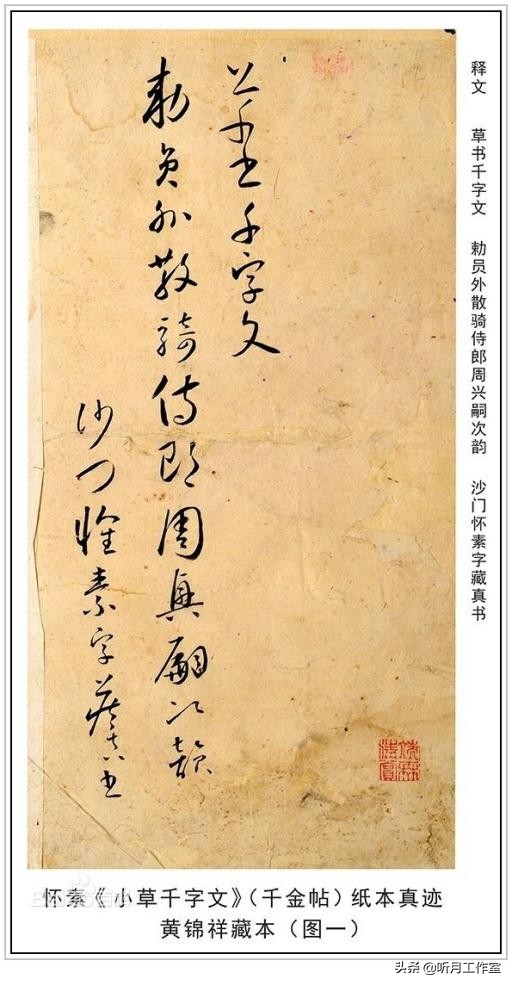 释文 草书千字文 勅员外散骑侍郎周兴嗣次韵 沙门怀素字藏真书
草書千字文
勅員外散騎侍郎周興嗣次韻
沙门懷素字藏真書
怀素《小草千字文》（千金帖）纸本真迹
黄锦祥藏本（图一）
头条 @听月工作室